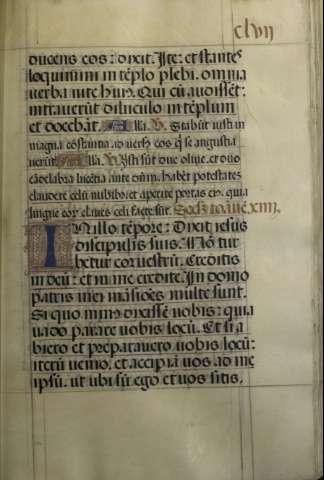 clvij
ducens eos: dixit. Ite: et stantes
loquimini in tēplo plebi. omnia
verba vite huiꝰ. Qui cū audissēt:
intrauerūt diluculo in templum
et docebāt. Alla. ℣. Stabūt iusti in
magna cōstantia. aduersꝰ eos qͥ se angustia
uerūt. Alla. ℣. Isti sūt due oliue. et duo
cādelabra lucētia ante dn̄m. habēt potestatē
claudere celū nubibꝰ. et aperire portas eiꝰ. quia
lingue eoꝝ claues celi facte sūt. Secd̄ȝ ioānē. xiiij.
IN illo tēpore: Dixit iesus
discipulis suis. Nō tur
betur cor uestrū. Creditis
in deū: et in me credite. In domo
patris mei māsiōes multe sunt.
Si quo minꝰ dixissē uobis: quia
uado parare uobis locū. Et si a
biero et preparauero uobis locū:
iterū uenio. et accipiā uos ad me
ipsū. ut ubi sū ego et uos sitis.